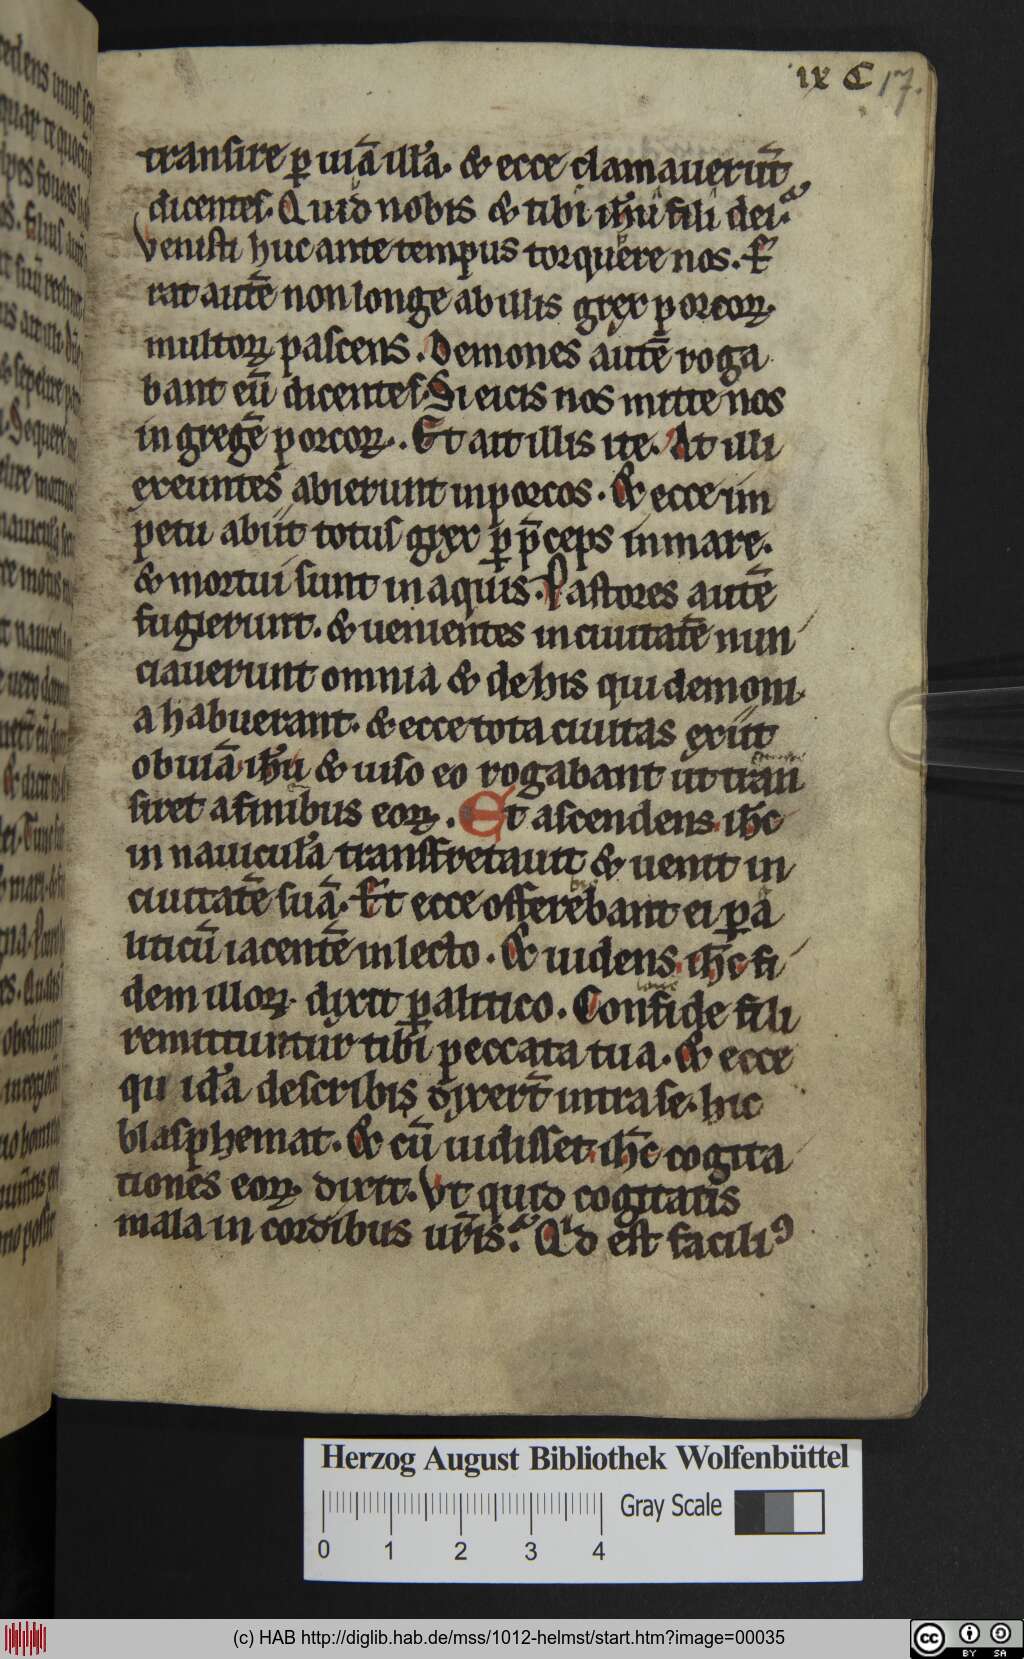 ix C 17.
transire ꝑ uiā illᷓa. & ecce clamauerūt
dicentes. Quid nobis & tibi ihū fili dei.
Venisti huc ante tempus torquere nos. E
rat autē non longe ab illis grex porcoꝝ
multoꝝ pascens. Demones autē roga
bant eū dicentes. Si eicis nos mitte nos
in gregē porcoꝝ. Et ait illis ite. At illi
exeuntes abierunt in porcos. & ecce im
petu abiit totus grex ꝑ p̄ceps in mare.
& mortui sunt in aquis. Pastores autē
fugierunt. & uenientes in ciuitatē nun
ciauerunt omnia & de his qui demoni
a habuerant. & ecce tota ciuitas exiit
obuiā ihu & uiso eo rogabant ut tran
siret a finibus eoꝝ. Et ascendens ihc
in nauicula transfretauit & uenit in
ciuitatē suā. Et ecce offerebant ei para
liticū iacentē in lecto. & uidens ihc fi
dem illoꝝ dixit ꝑalitico. Confide fili
remittuntur tibi peccata tua. & ecce
qu idᷓa de scribis dixert̄ intra se. hic
blasphemat. & cū uidisset ihc cogita
tiones eoꝝ dixit. Vt quid cogitatis
mala in cordibus ur̄is. Qͥd est faciliꝰ
Herzog August Bibliothek Wolfenbüttel
Gray Scale
0 1 2 3 4
(c) HAB http://diglib.hab.de/mss/1012-helmst/start.htm?image=00035
cc BY SA